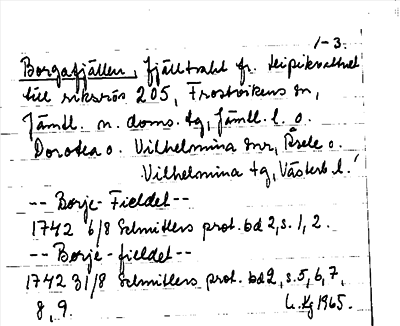 1-3.
Borgafjällen, fjälltrakt fr. Leipikvattnet
till riksrös 205, Frostvikens sn,
Jämtl. n. doms. tg, Jämtl. l. o.
Dorotea o. Vilhelmina snr, Åsele o.
Vilhelmina tg, Västerb l.
-- Borje-Fieldet --
1742 6/8 Schnitlers prot. bd 2, s. 1, 2.
-- Borje-fieldet --
1742 31/8 Schnitlers prot. bd 2, s. 5, 6, 7,
8, 9. 1965.